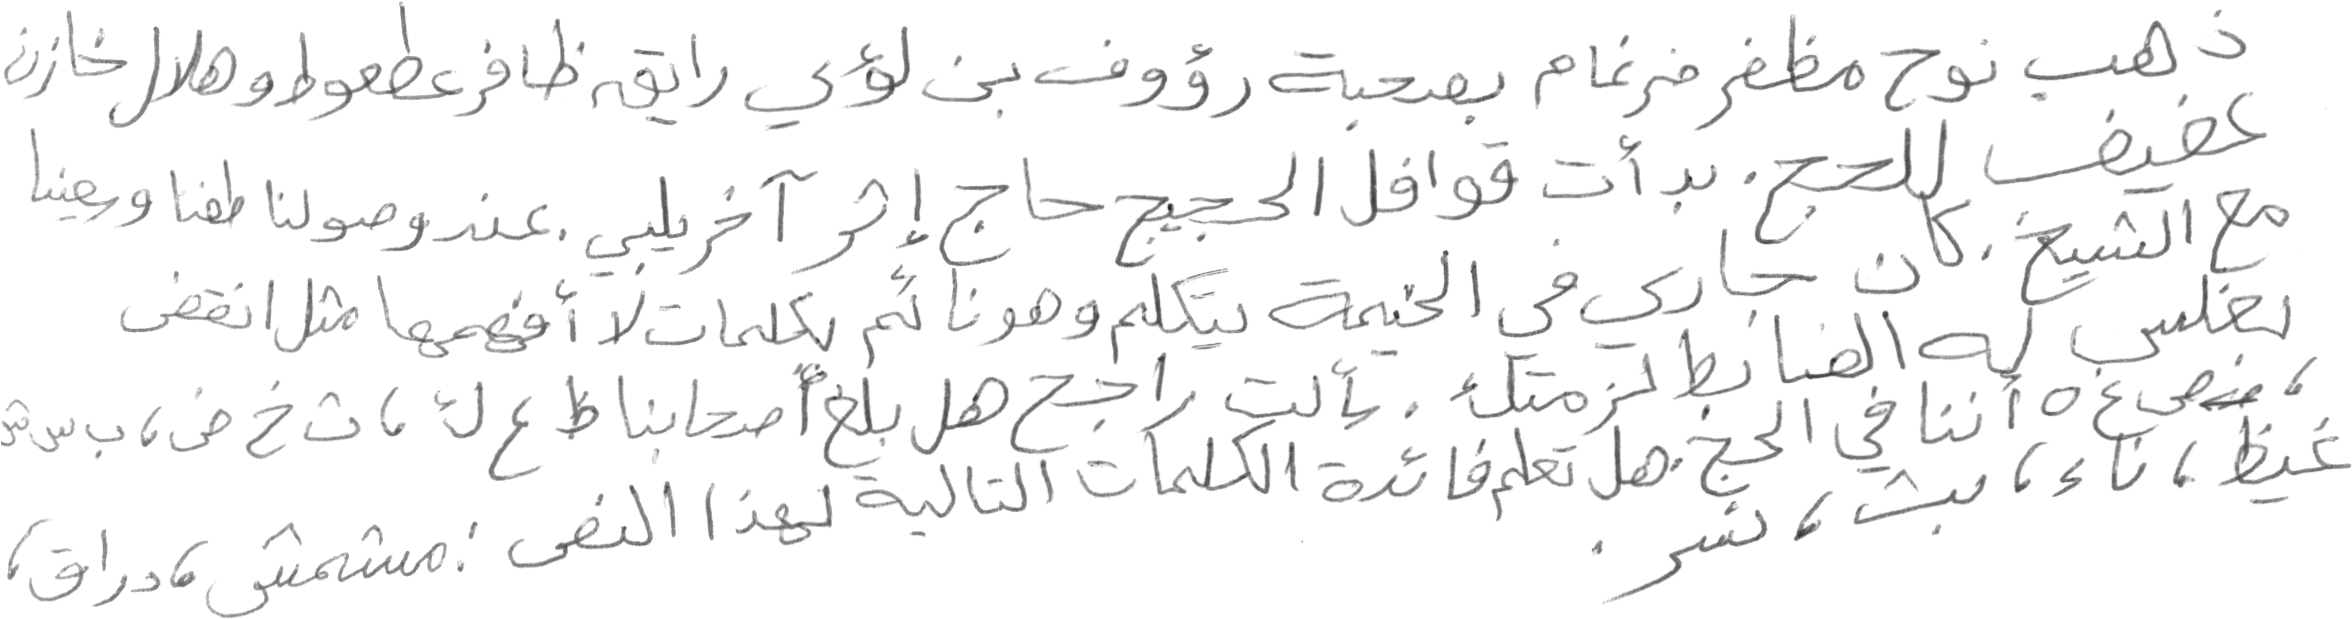 ذهب نوح مظفر ضرغام بصحبة رؤوف بن لؤي رايق ظافر عطعوط وهلال خازن
عفيف للحج. بدأت قوافل الحجيج حاج إثر آخر يلبي. عند وصولنا طفنا وسعينا
مع الشيخ. كان جاري في الخيمة يتكلم وهو نائم بكلمات لا أفهمها مثل انقض
بغلس له الضابط لزمتك. سألت راجح هل بلغ أصحابنا ظ ع لئ، ث خ ض، ب س ش
، ص غ ه أننا في الحج. هل تعلم فائدة الكلمات التالية لهذا النص: مشمش، دراق،
غيظ، ناء، بث، نسر.